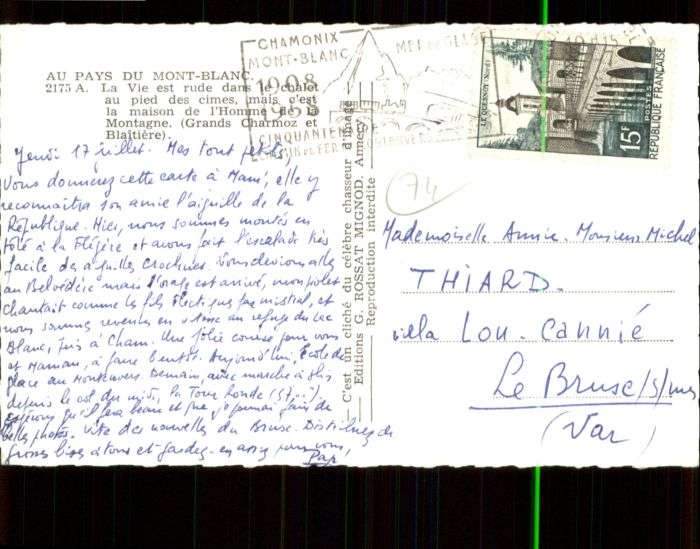 CHAMONIX
MONT-BLANC
1908
1958
CINQUANTENAIRE
MER DE GLACE
LE QUESNOY (Nord)
15F
POSTES
RÉPUBLIQUE FRANÇAISE
AU PAYS DU MONT-BLANC.
2175 A. La Vie est rude dans le chalot
au pied des cimes, mais c'est
la maison de l'Homme de la
Montagne. (Grands Charmoz et
Blaîtière).
Jeudi 17 juillet. Mes tout petits
Vous donnerez cette carte à Mami, elle y
reconnaîtra son amie l'aiguille de la
République. Hier, nous sommes montés en
télé à la Flégère et avons fait l'escalade très
facile des aiguilles Crochues. Nous devions aller
au Belvédère mais l'orage est arrivé, mon piolet
chantait comme les fils électriques par mistral, et
nous sommes revenus en vitesse au refuge du Lac
Blanc, puis à Cham. Une jolie course pour vous
et Maman, à faire bientôt. Aujourd'hui, École de
glace au Montenvers. Demain, avec marche à
depuis le
Tour Ronde
espérons qu'il fera beau et que je pourrai faire de
belles photos. Vite des nouvelles du Brusc. Distribuez de
grosses bises à tous et gardez-en assez pour vous,
Pap
— C'est un cliché du célèbre chasseur d'image
— Editions G. ROSSAT MIGNOD. Annecy
Reproduction interdite
74
Mademoiselle Annie. Monsieur Michel
THIARD.
villa Lou. Cannié
Le Brusc/s/mer
(Var)